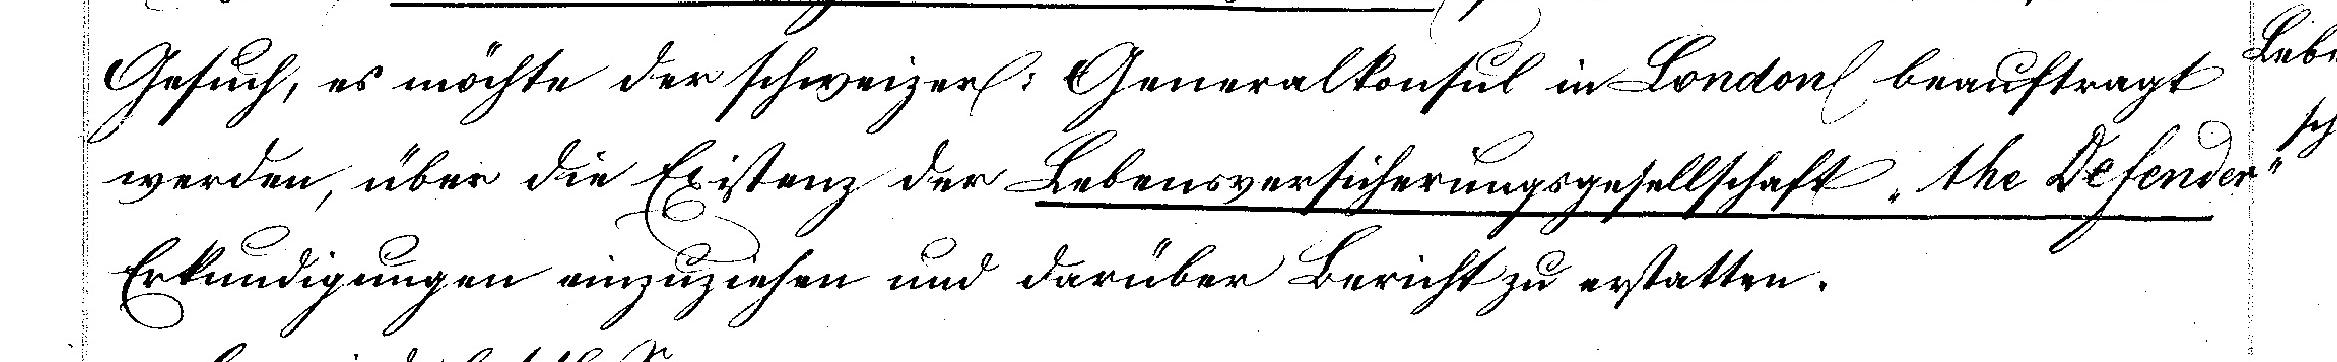 Gesuch, es möchte der schweizer: Generalkonsul in London beauftragt
werden, über die Existenz der Lebensversicherungsgesellschaft „the Defender“
Erkundigungen einzuziehen und darüber Bericht zu erstatten.